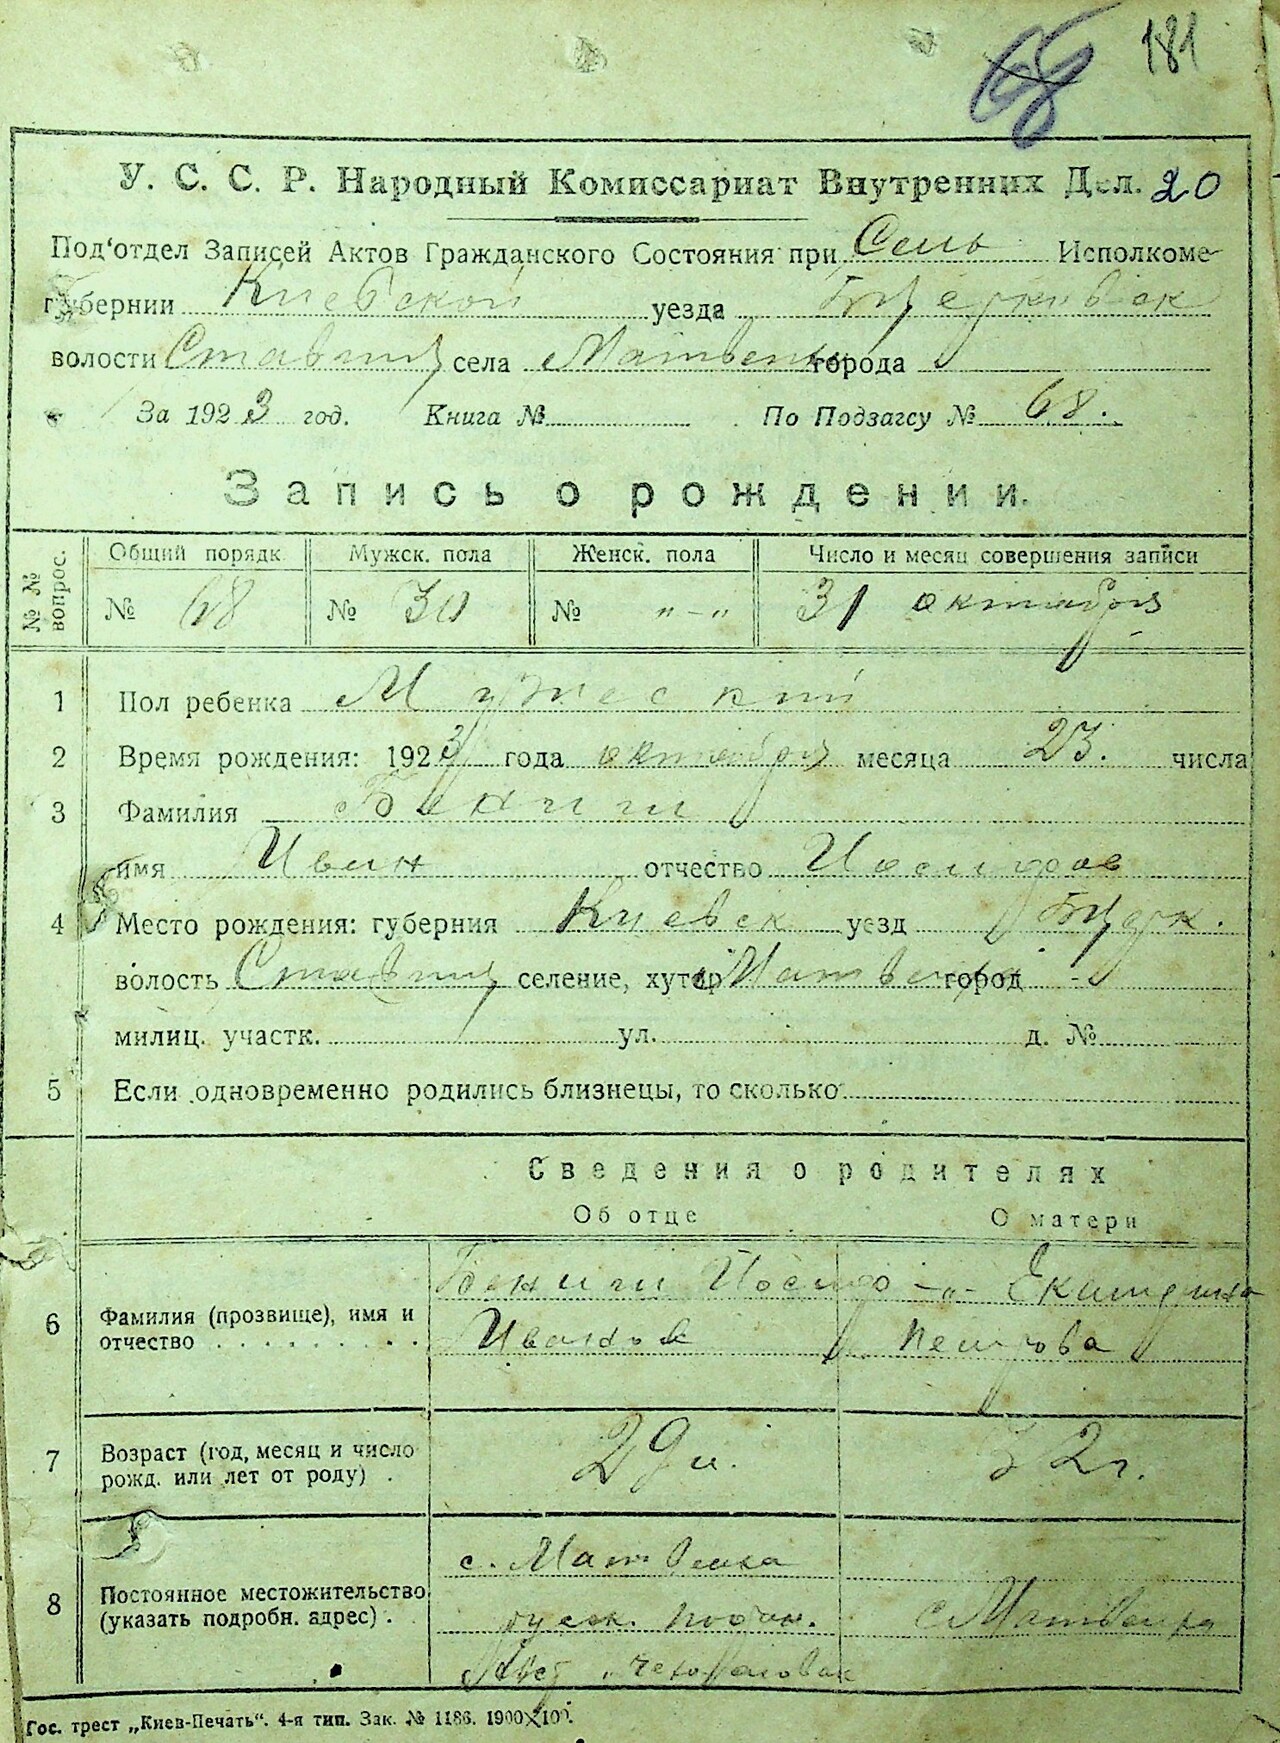 68 181
У. С. С. Р. Народный Комиссариат Внутренних Дел. 20
Под'отдел Записей Актов Гражданского Состояния при Сель Исполкоме
губернии Киевской уезда БЦерковск
волости Ставищ села города
За 1923 год. Книга № По Подзагсу № 68.
Запись о рождении.
№ № вопрос.
Общий порядк. Мужск. пола Женск. пола Число и месяц совершения записи
№ 68 № 30 № "-" 31 октября
1 Пол ребенка Мужеский
2 Время рождения: 1923 года октября месяца 23. числа
3 Фамилия Бениш
имя Иван отчество Иосифов
4 Место рождения: губерния Киевск уезд БЦерк.
волость Ставищ селение, хутор город -
милиц. участк. ул. д. №
5 Если одновременно родились близнецы, то сколько
Сведения о родителях
Об отце О матери
6 Фамилия (прозвище), имя и отчество
Бениш Иосиф -"- Екатерина
Иванов Петрова
7 Возраст (год, месяц и число рожд. или лет от роду)
29 л. 32 г.
8 Постоянное местожительство (указать подробн. адрес)
с. Матвеиха с Матвеиха
русск. подан.
Гос. трест „Киев-Печать". 4-я тип. Зак. № 1186. 1900×100.